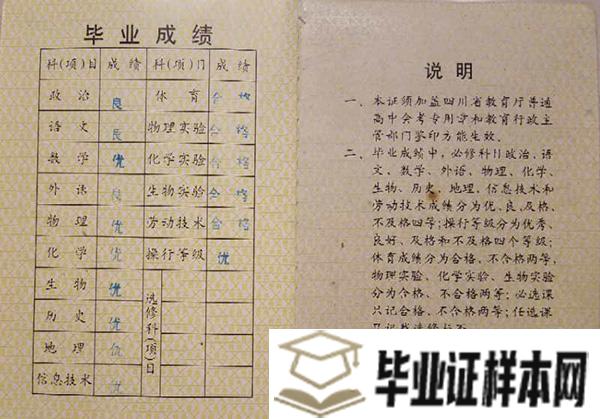 毕业成绩
科(项)目 成绩 科(项)门 成绩
政治 良 体育 合格
语文 良 物理实验 合格
数学 优 化学实验 合格
外语 良 生物实验 合格
物理 优 劳动技术 合格
化学 优 操行等级 优
生物 优 选修科(项)目
历史 优
地理 优
信息技术 优
说明
一、本证须加盖四川省教育厅普通
高中会考专用章和教育行政主
管部门签印方能生效。
二、毕业成绩中,必修科目政治、语
文、数学、外语、物理、化学、
生物、历史、地理、信息技术和
劳动技术成绩分为优、良、及格、
不及格四等;操行等级分为优秀、
良好、及格和不及格四个等级;
体育成绩分为合格、不合格两等,
物理实验、化学实验、生物实验
分为合格、不合格两等;必选课
只记合格、不合格两等;任选课
毕业证样本网